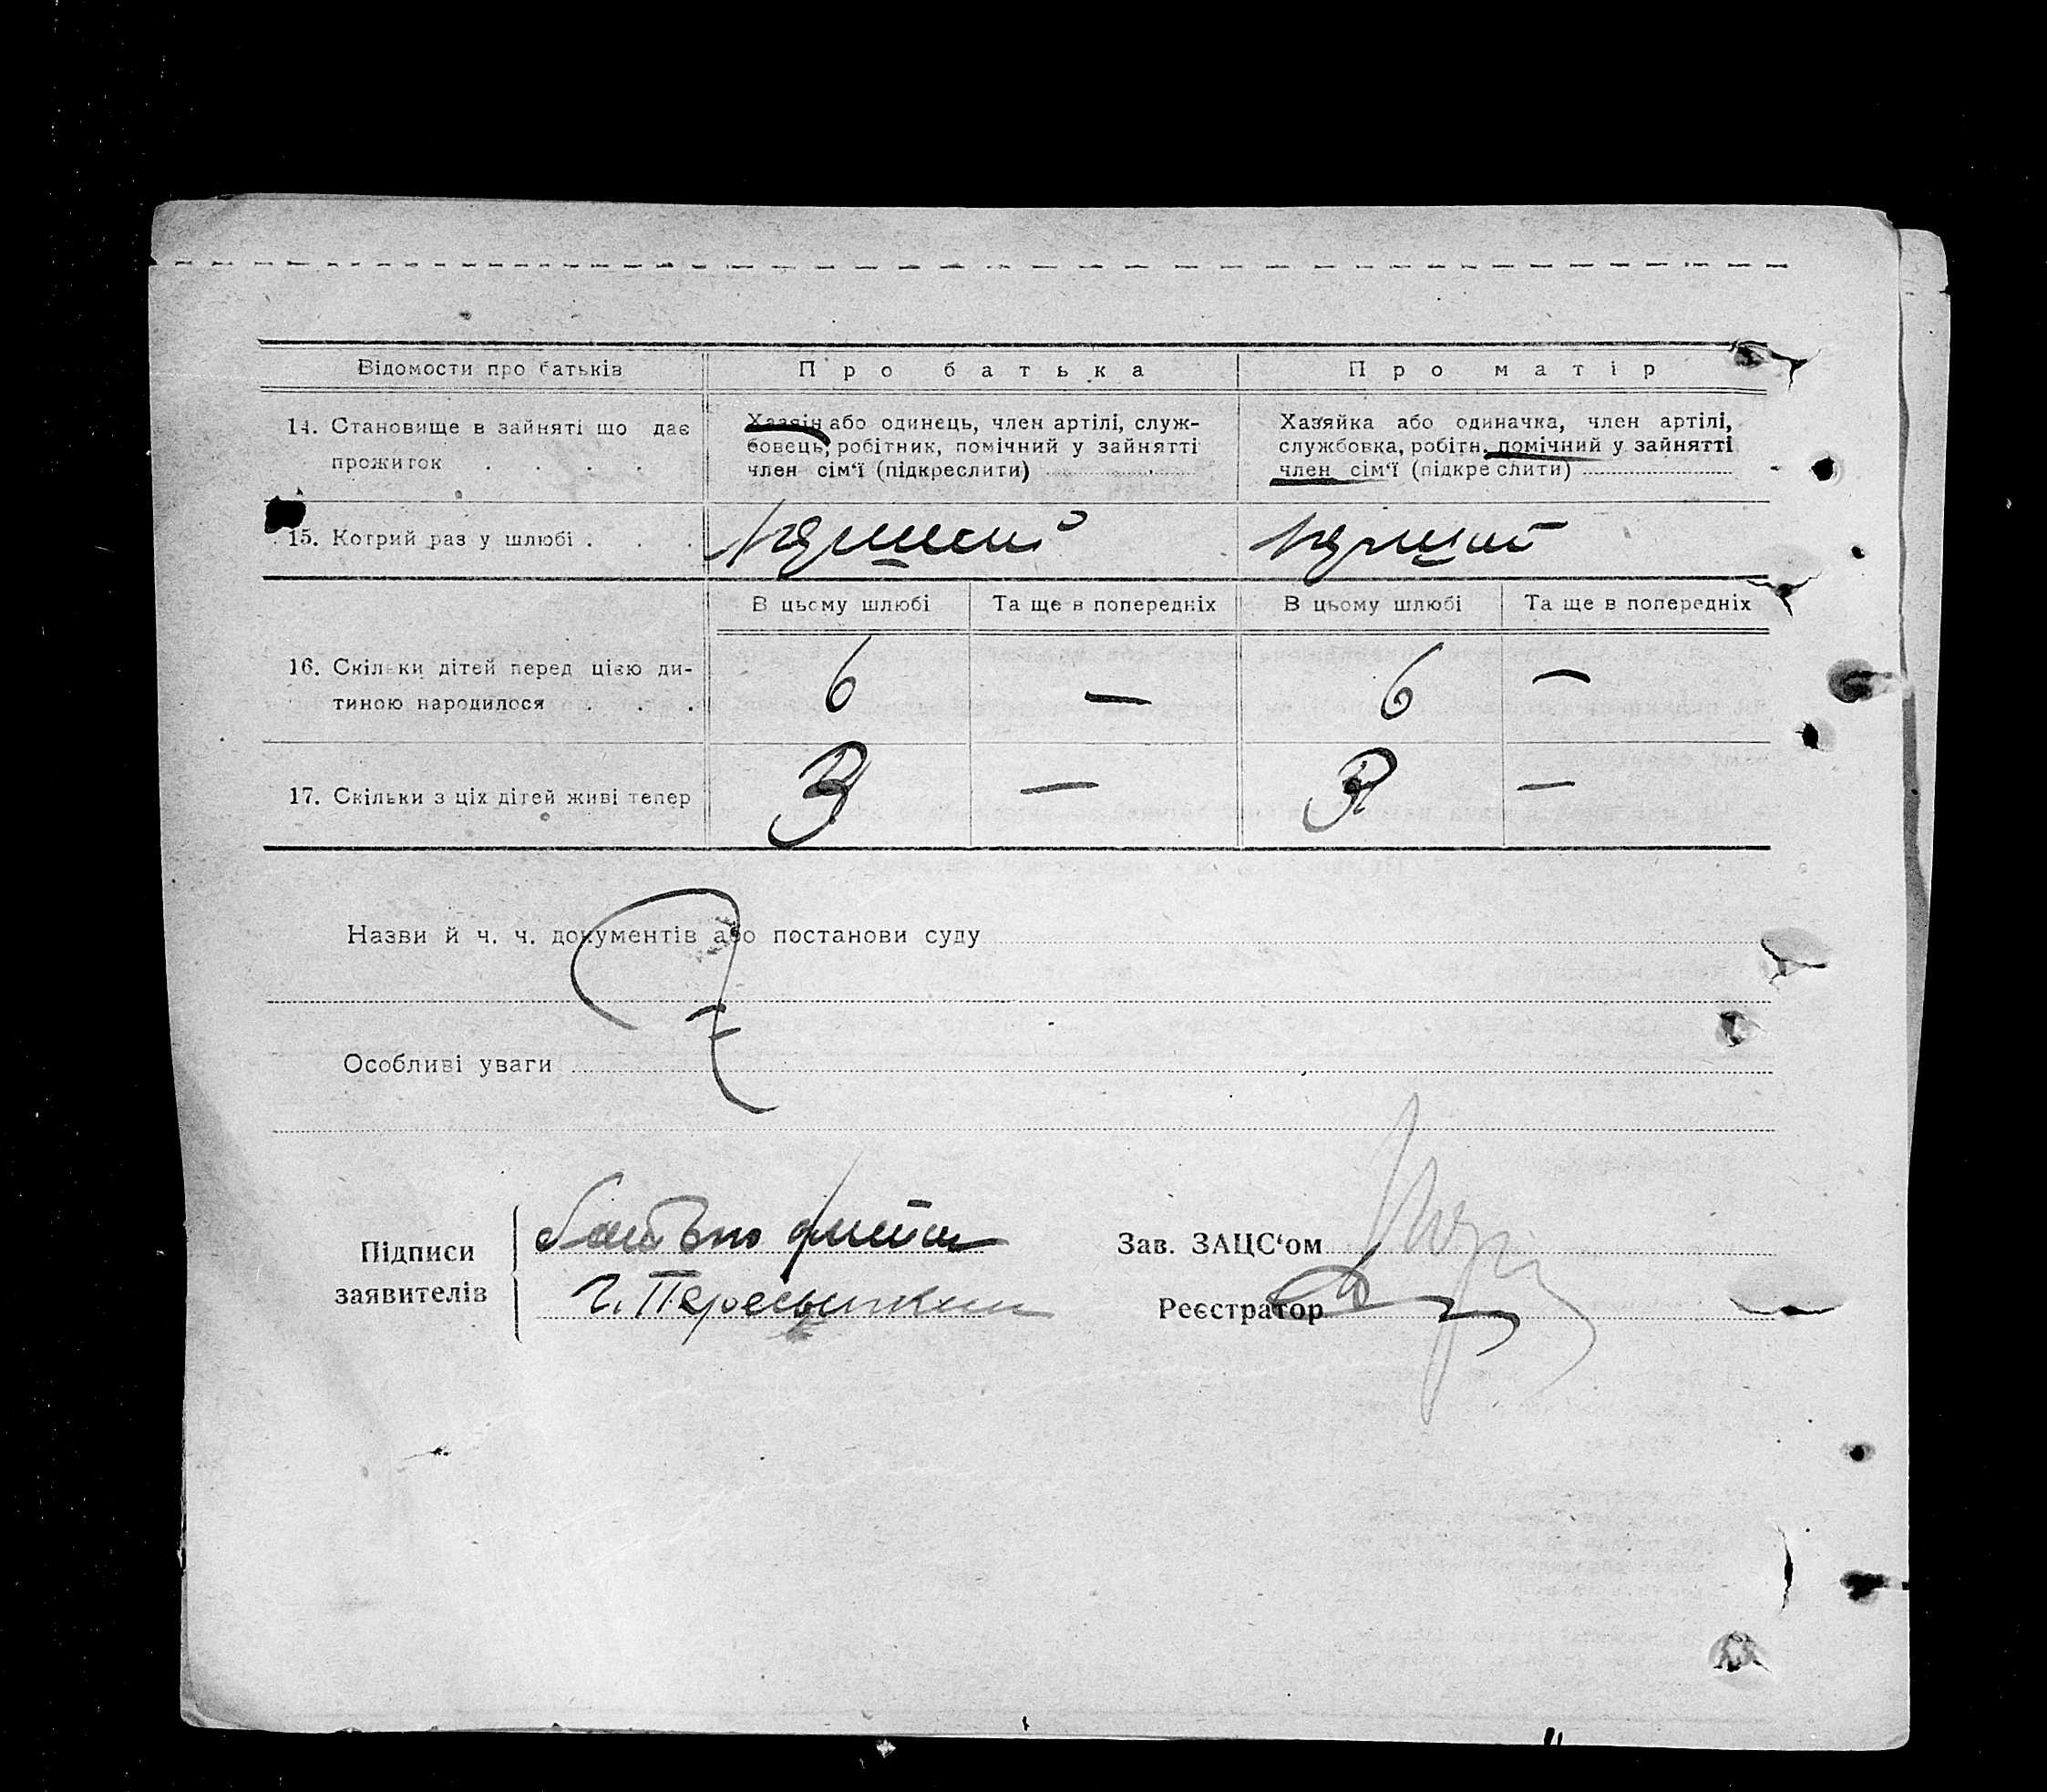 Відомости про батьків
Про батька
Про матір
14. Становище в зайняті що дає
прожиток . . . .
Хазяін або одинець, член артілі, служ-
бовець, робітник, помічний у зайнятті
член сім‘ї (підкреслити)
Хазяйка або одиначка, член артілі,
службовка, робітн. помічний у зайнятті
член сім‘ї (підкреслити)
15. Котрий раз у шлюбі . . .
В цьому шлюбі
Та ще в попередніх
В цьому шлюбі
Та ще в попередніх
16. Скільки дітей перед цією ди-
тиною народилося . . .
6
—
6
—
17. Скільки з ціх дітей живі тепер
3
—
3
—
Назви й ч. ч. документів або постанови суду
Особливі уваги
Підписи
заявителів
батько
Г. Пересыпкин
Зав. ЗАЦС‘ом
Реєстратор